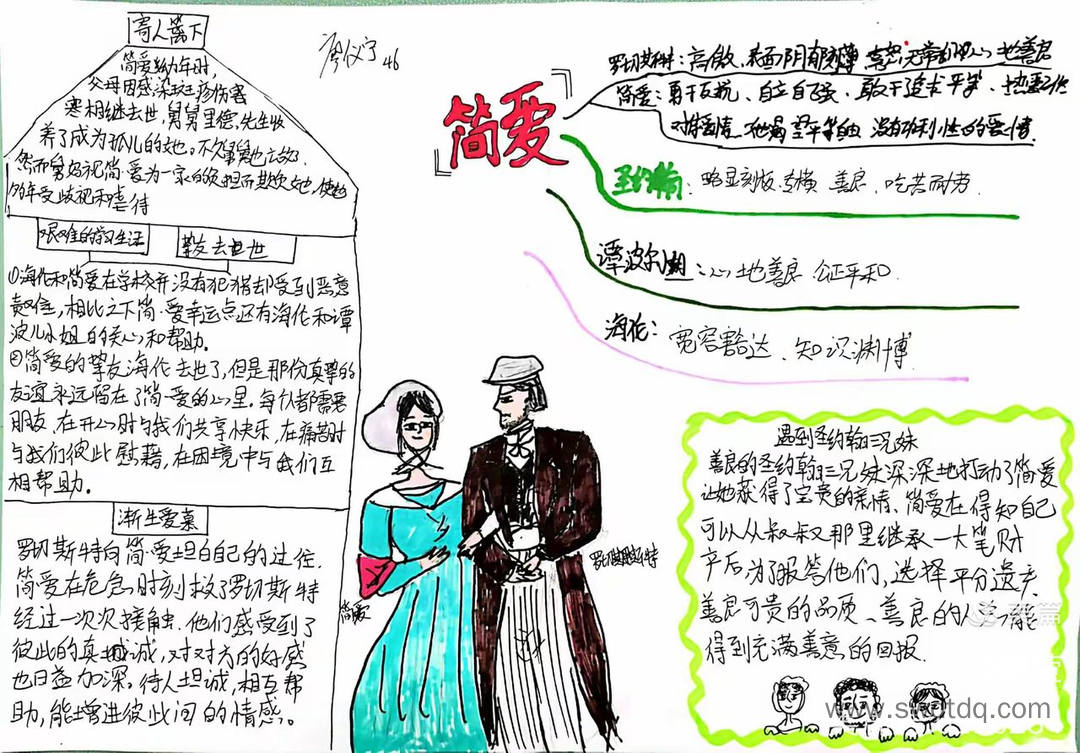 寄人篱下
简爱幼年时,
父母因感染斑疹伤害
寒相继去世,舅舅里德先生收
养了成为孤儿的她。不久舅舅也去世
然而舅妈视简·爱为一家的
年受歧视和虐待
艰难的学习生活
挚友去世
①海伦和简爱在学校并没有犯错却受到恶意
责怪,相比之下简·爱幸运点还有海伦和谭
波儿小姐的关心和帮助。
②简爱的挚友海伦去世了,但是那份真挚的
友谊永远留在了简·爱的心里。每个人都需要
朋友,在开心时与我们共享快乐,在痛苦时
与我们彼此慰藉,在困境中与我们互
相帮助。
渐生爱慕
罗切斯特向简·爱坦白自己的过往.
简爱在危急时刻救了罗切斯特
经过一次次接触.他们感受到了
彼此的真诚,对对方的好感
也日益加深。待人坦诚,相互帮
助,能增进彼此间的情感。
46
简爱
罗切斯特:高傲、表面阴郁 喜怒无常的 心地善良
简爱:勇于反抗、自立自强、敢于追求平等、
对爱情 渴望平等自由 没有功利性的爱情.
圣约翰:略显刻板、专横 善良、吃苦耐劳.
谭波尔:心地善良 公正平和.
海伦:宽容豁达、知识渊博
简爱
罗切斯特
遇到圣约翰三兄妹
善良的圣约翰三兄妹深深地打动了简爱
让她获得了宝贵的亲情、简爱在得知自己
可以从叔叔那里继承一大笔财
产后为了报答他们,选择平分遗产
善良可贵的品质、善良的人 能
得到充满善意的回报.
美篇